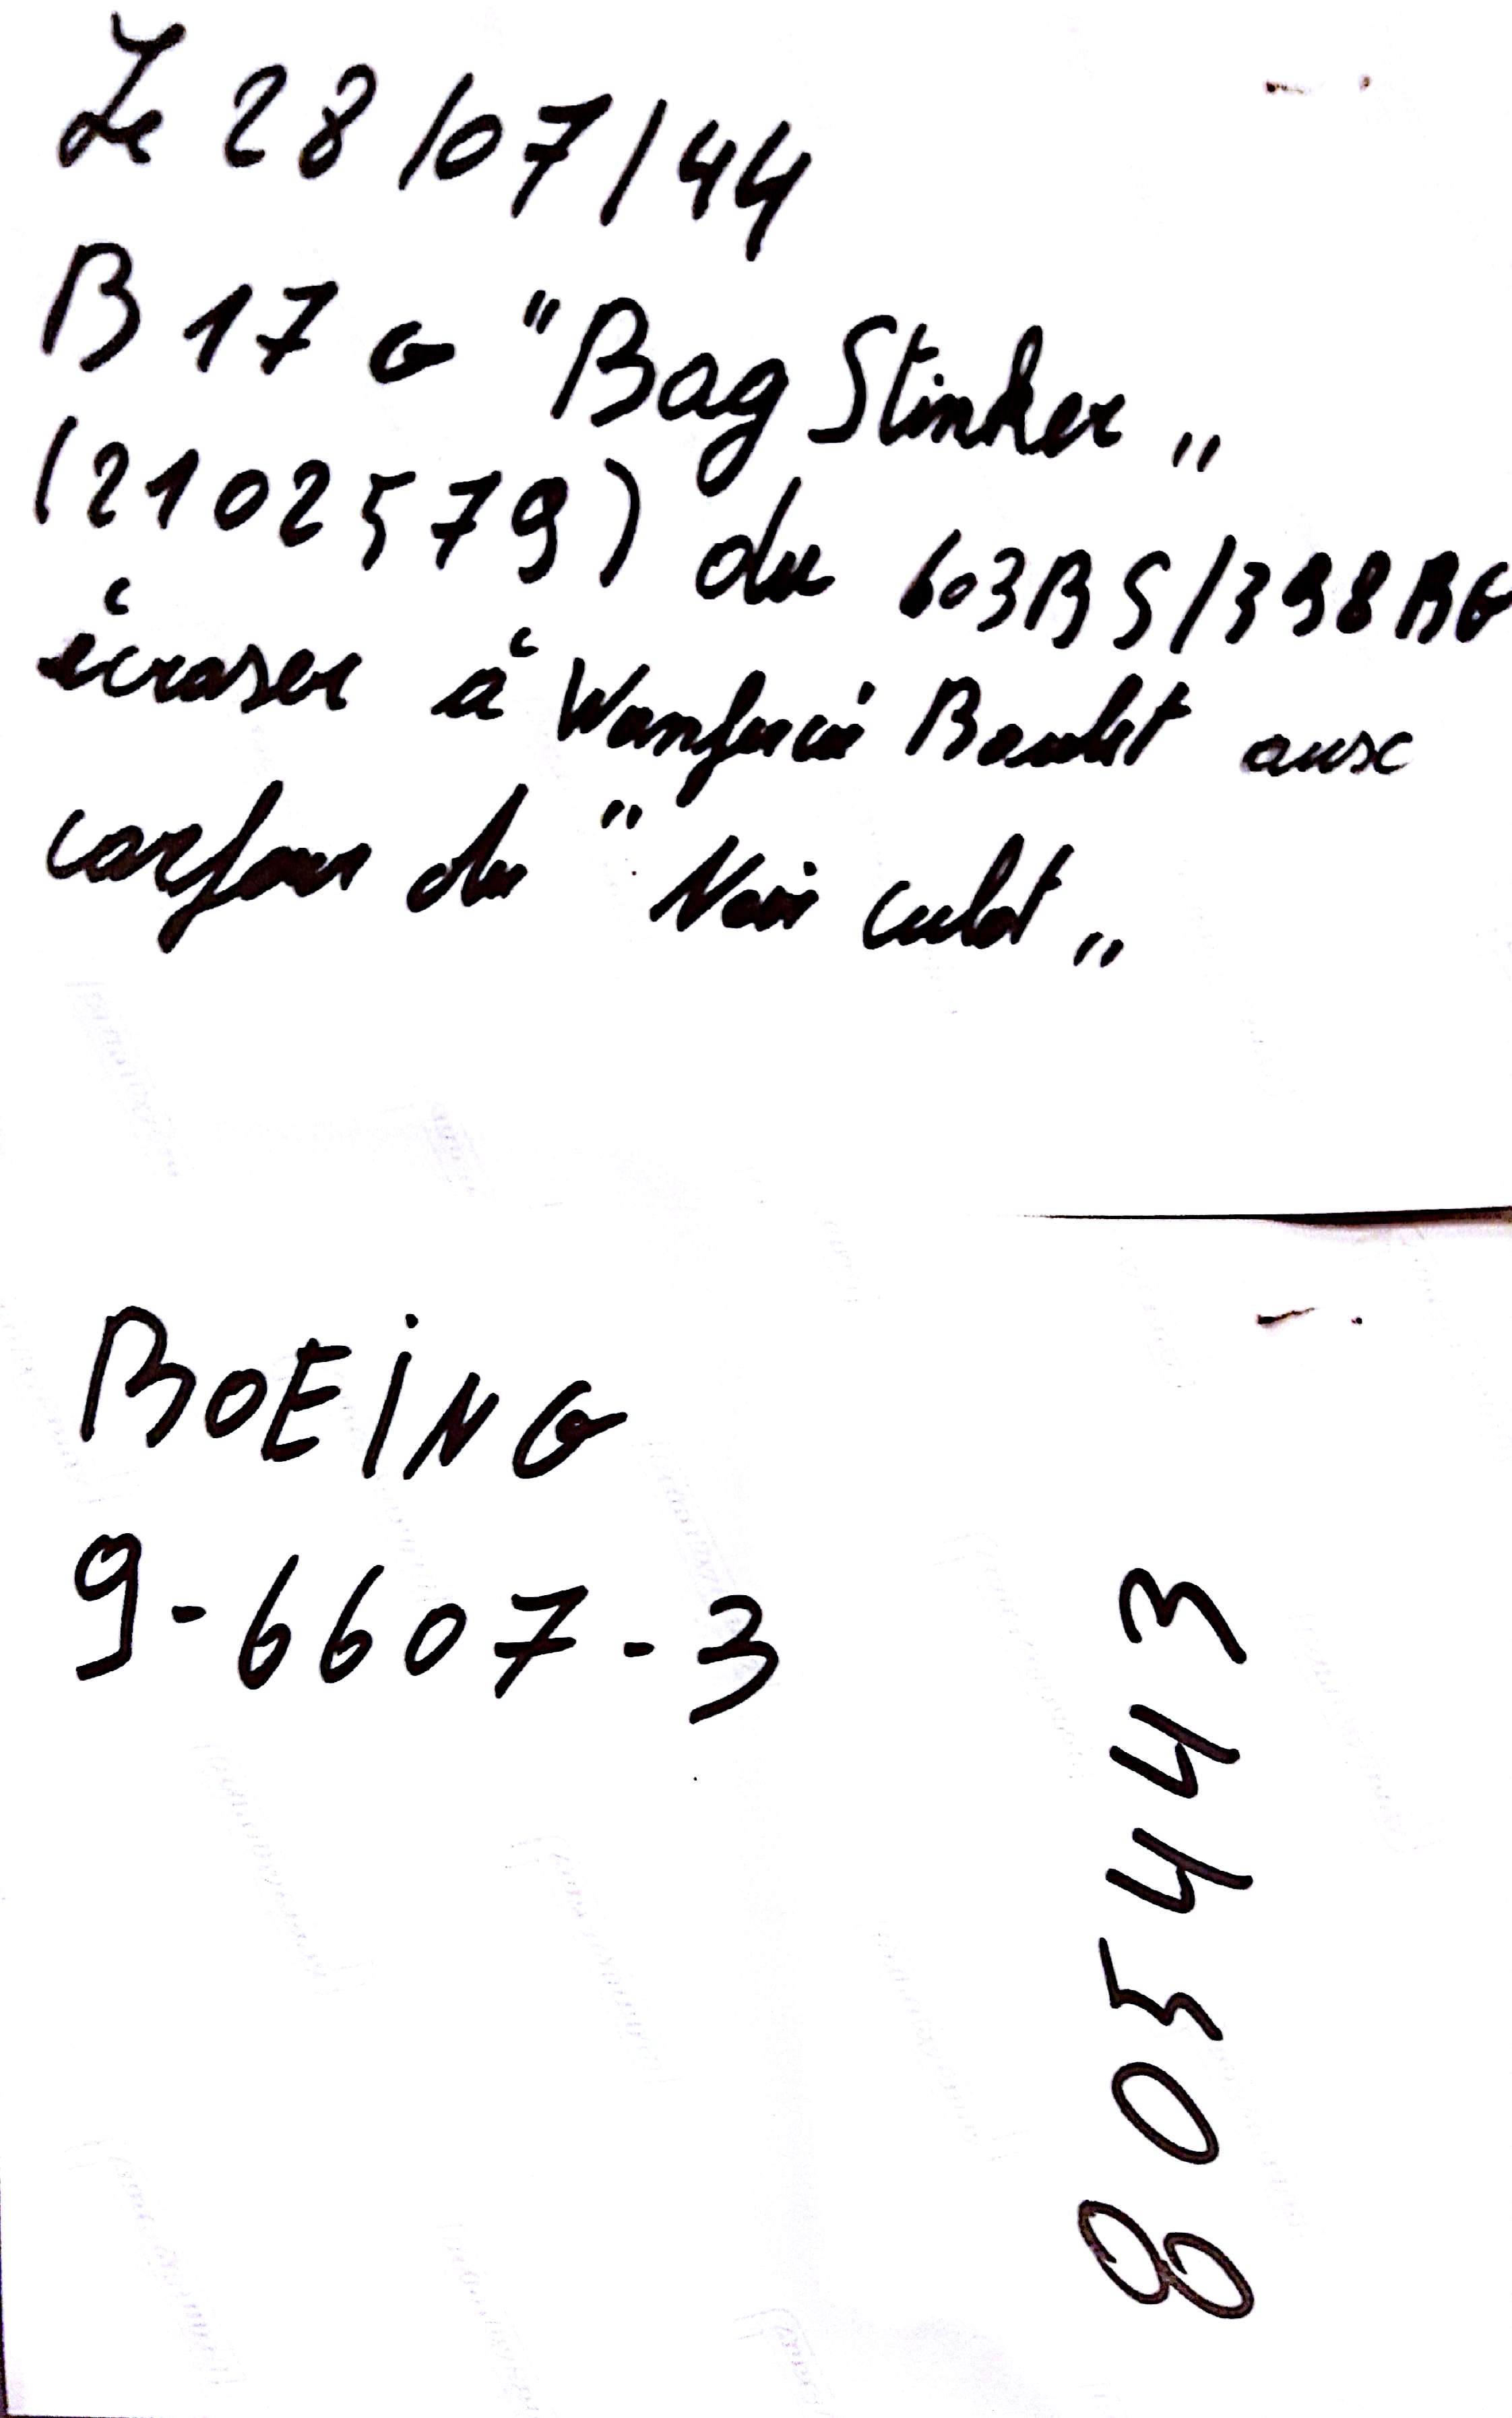 Le 28/07/44
B 17 G "Bag Stinker"
(2102579) du 603BS/398BG
écraser à Wanfercée Baulet aux
carfour du "Noir culot"
BOEING
9-6607-3
805443